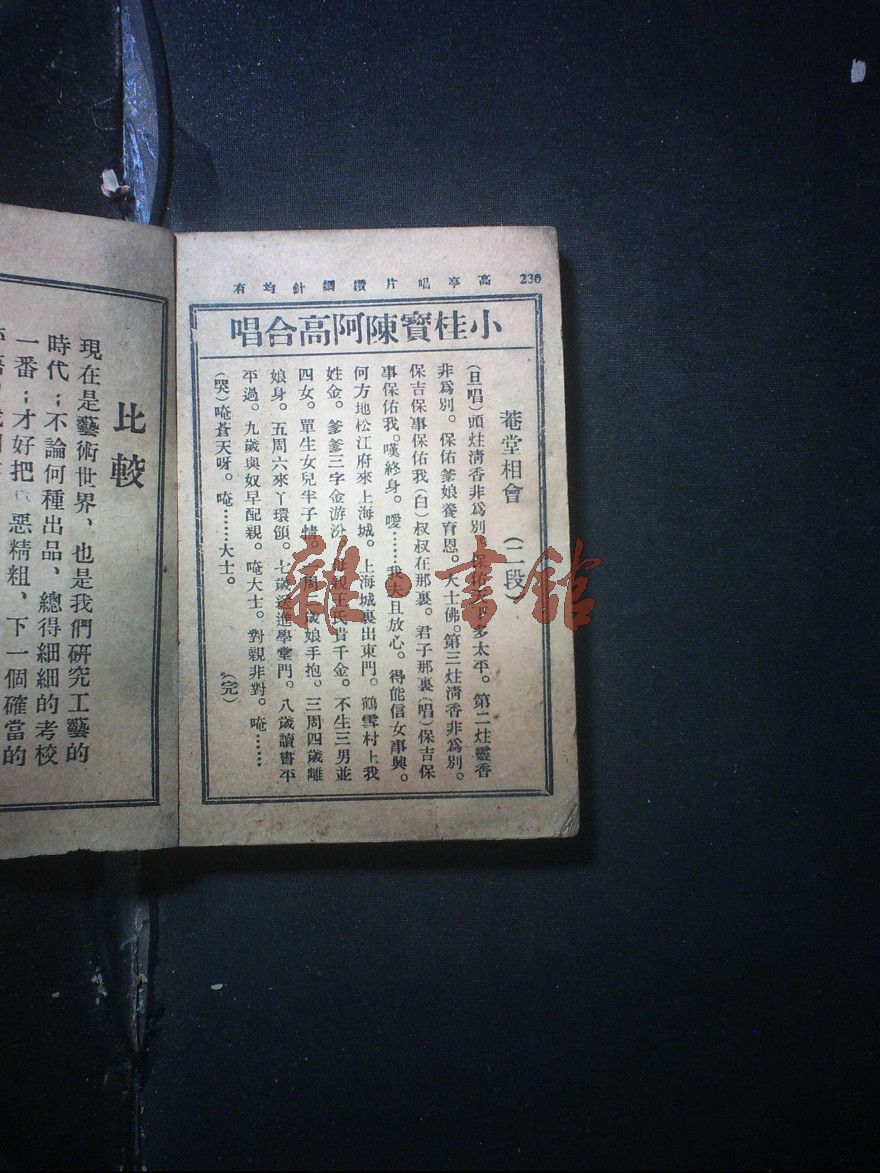 230
高亭唱片鑽鋼針均有
小桂寶陳阿高合唱
菴堂相會（二段）
（旦唱）頭炷清香非爲別。保佑多太平。第二炷靈香
非爲別。保佑爹娘養育恩。大士佛。第三炷清香非爲別。
保吉保事保佑我（白）叔叔在那裏。君子那裏（唱）保吉保
事保佑我。嘆終身。噯……我夫且放心。得能信女事興。
何方地松江府來上海城。上海城裏出東門。鶴雪村上我
姓金。爹爹三字金游汾。母親王氏貴千金。不生三男並
四女。單生女兒半子情。一周二歲娘手抱。三周四歲離
娘身。五周六來丫環領。七歲送進學堂門。八歲讀書平
平過。九歲與奴早配親。唵大士。對親非對。唵……
（哭）唵蒼天呀。唵……大士。
（完）
雜·書館
比較
現在是藝術世界、也是我們研究工藝的
時代；不論何種出品、總得細細的考校
一番；才好把惡精粗、下一個確當的